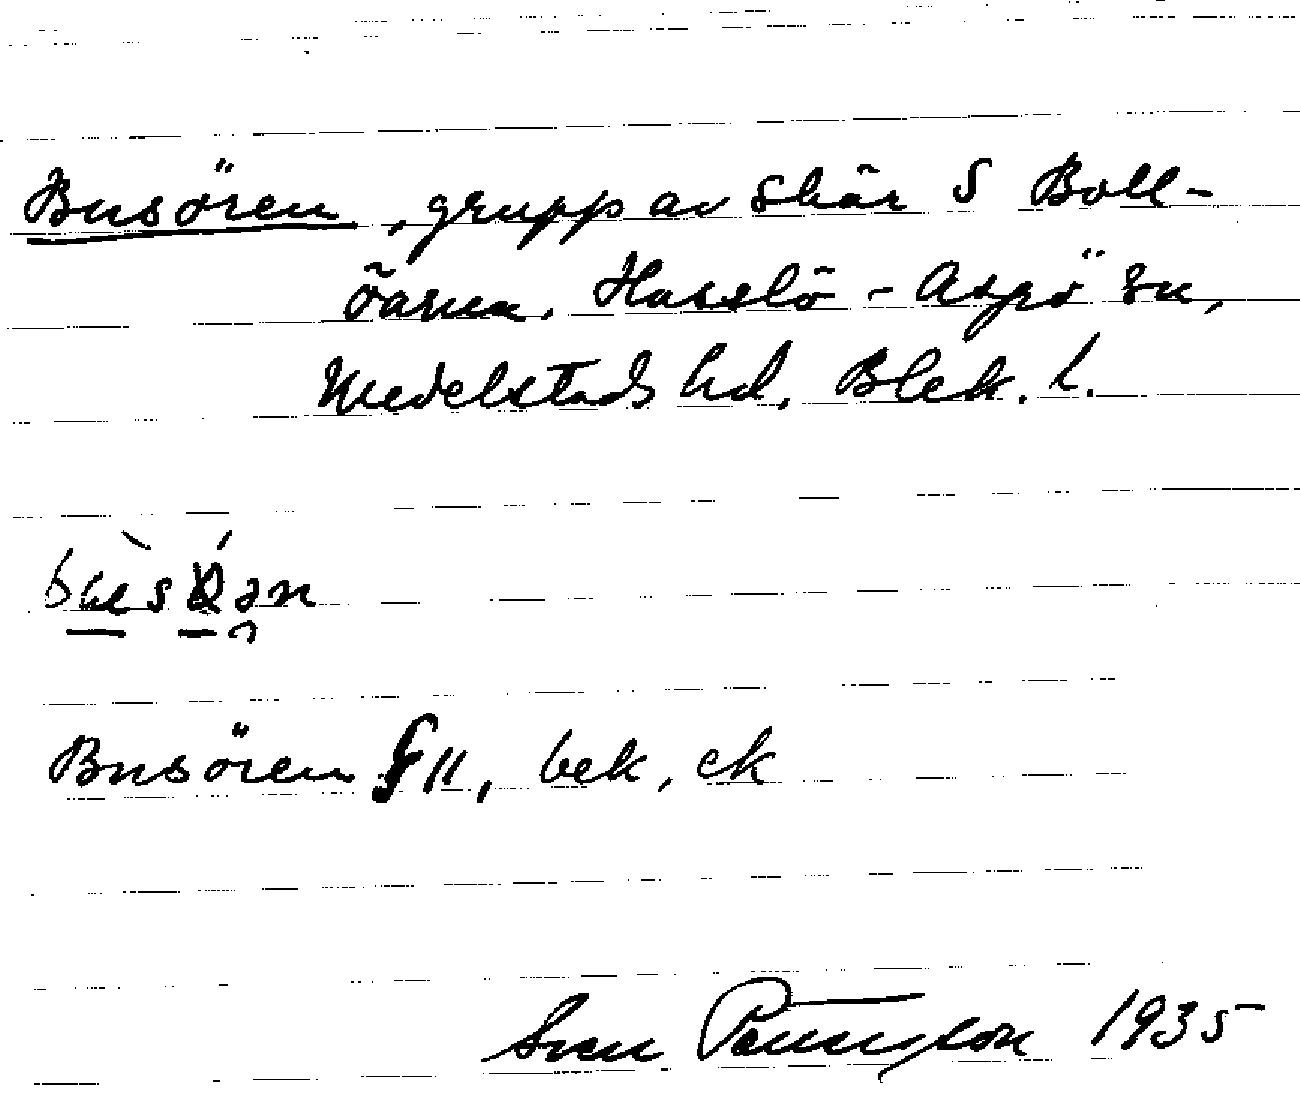 Busören, grupp av skär S Boll-
öarna. Hasslö - Aspö sn,
Medelstads hd, Blek. l.
Busören G 11, bek, ek
Sven 1935